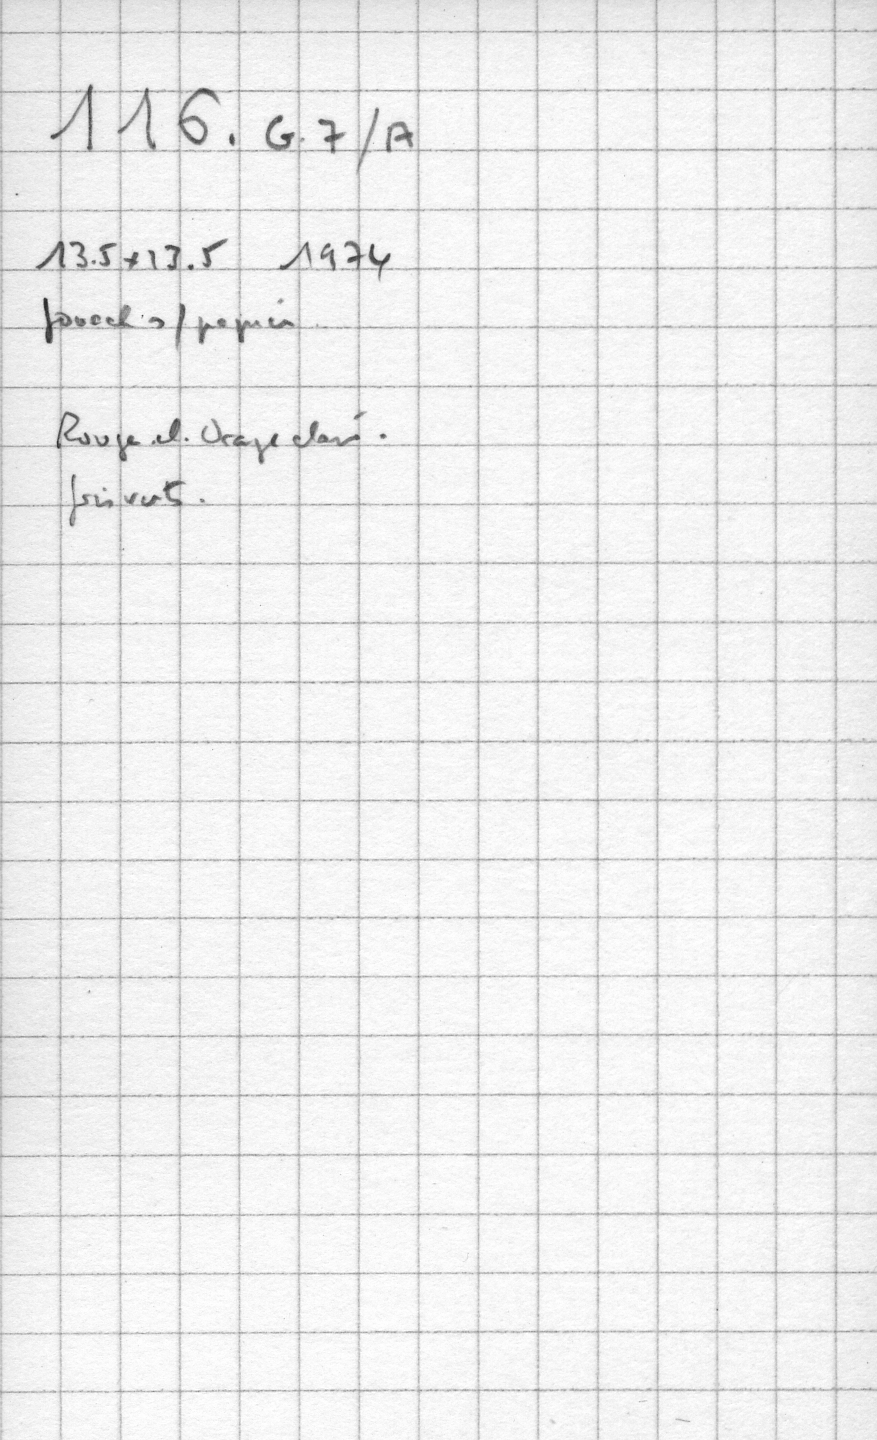 116. G.7/A
13.5x13.5 1974
gouache/papier
Rouge cl. Orange clair.
gris vert.